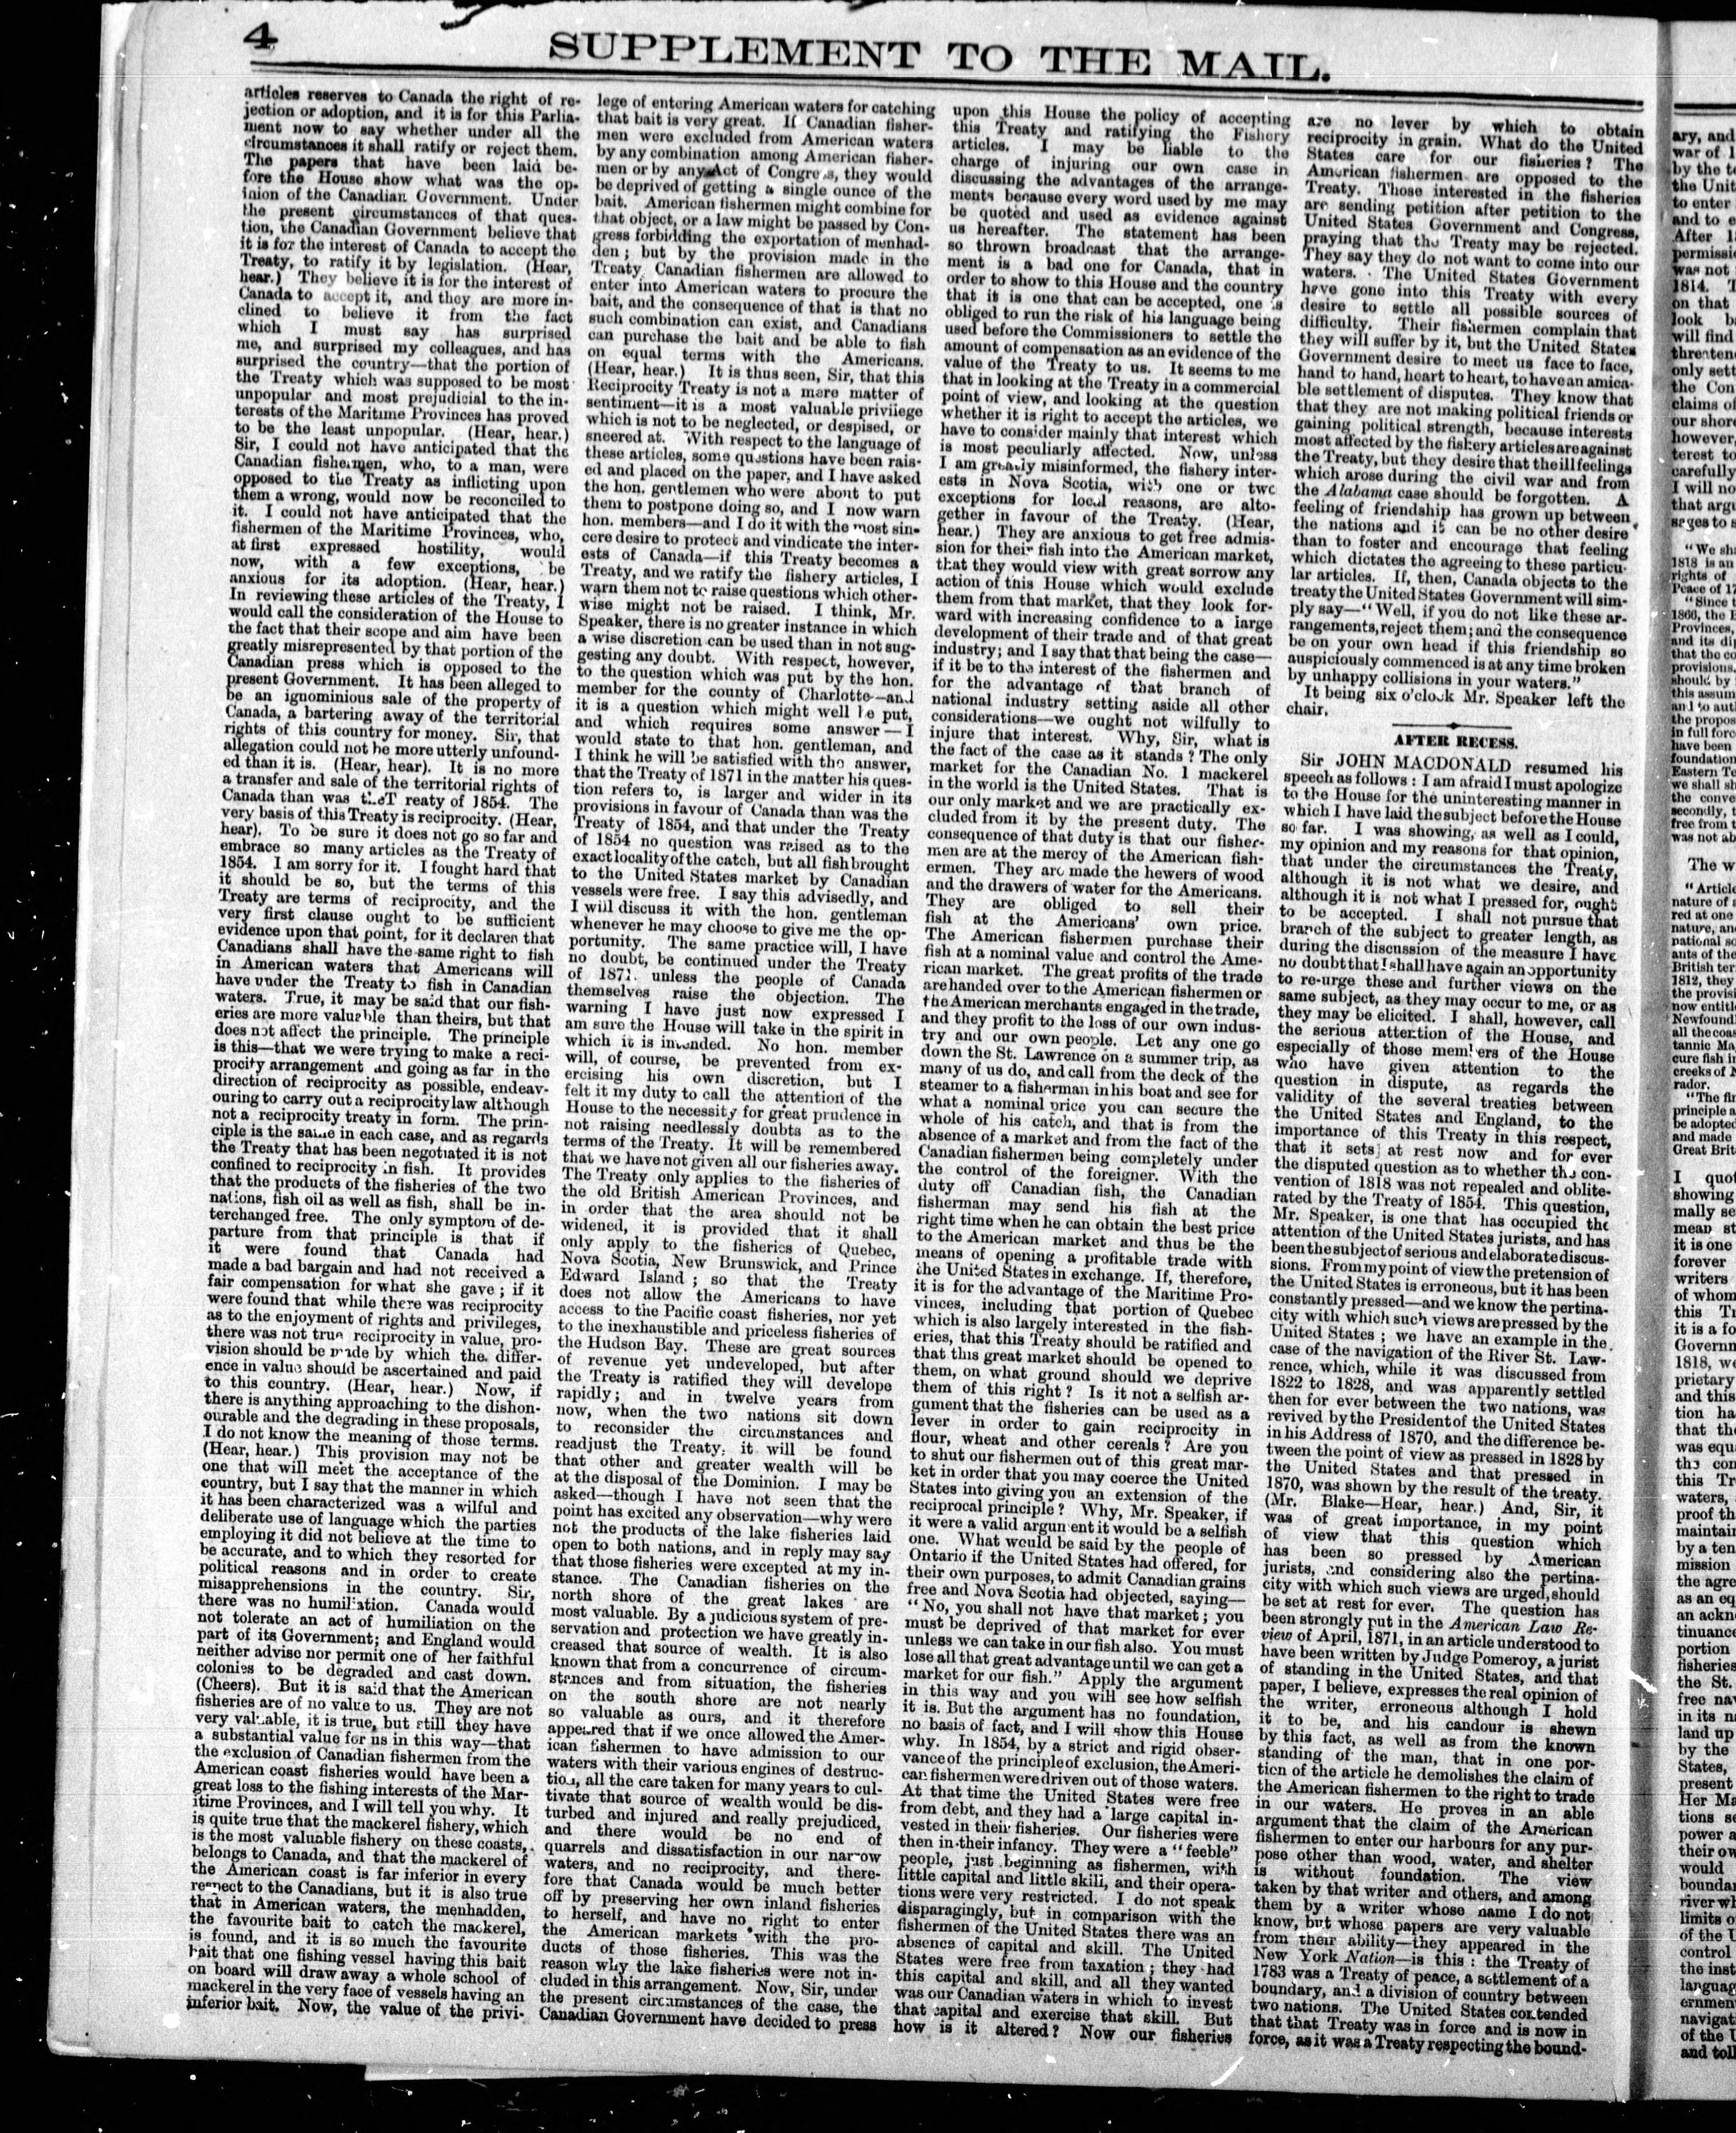 4
SUPPLEMENT TO THE MAIL.
articles reserves to Canada the right of re-
jection or adoption, and it is for this Parlia-
ment now to say whether under all the
circumstances it shall ratify or reject them.
The papers that have been laid be-
fore the House show what was the op-
inion of the Canadian Government. Under
the present circumstances of that ques-
tion, the Canadian Government believe that
it is for the interest of Canada to accept the
Treaty, to ratify it by legislation. (Hear,
hear.) They believe it is for the interest of
Canada to accept it, and they are more in-
clined to believe it from the fact
which I must say has surprised
me, and surprised my colleagues, and has
surprised the country—that the portion of
the Treaty which was supposed to be most
unpopular and most prejudicial to the in-
terests of the Maritime Provinces has proved
to be the least unpopular. (Hear, hear.)
Sir, I could not have anticipated that the
Canadian fishermen, who, to a man, were
opposed to the Treaty as inflicting upon
them a wrong, would now be reconciled to
it. I could not have anticipated that the
fishermen of the Maritime Provinces, who,
at first expressed hostility, would
now, with a few exceptions, be
anxious for its adoption. (Hear, hear.)
In reviewing these articles of the Treaty, I
would call the consideration of the House to
the fact that their scope and aim have been
greatly misrepresented by that portion of the
Canadian press which is opposed to the
present Government. It has been alleged to
be an ignominious sale of the property of
Canada, a bartering away of the territorial
rights of this country for money. Sir, that
allegation could not be more utterly unfound-
ed than it is. (Hear, hear). It is no more
a transfer and sale of the territorial rights of
Canada than was theT reaty of 1854. The
very basis of this Treaty is reciprocity. (Hear,
hear). To be sure it does not go so far and
embrace so many articles as the Treaty of
1854. I am sorry for it. I fought hard that
it should be so, but the terms of this
Treaty are terms of reciprocity, and the
very first clause ought to be sufficient
evidence upon that point, for it declares that
Canadians shall have the same right to fish
in American waters that Americans will
have under the Treaty to fish in Canadian
waters. True, it may be said that our fish-
eries are more valuable than theirs, but that
does not affect the principle. The principle
is this—that we were trying to make a reci-
procity arrangement and going as far in the
direction of reciprocity as possible, endeav-
ouring to carry out a reciprocity law although
not a reciprocity treaty in form. The prin-
ciple is the same in each case, and as regards
the Treaty that has been negotiated it is not
confined to reciprocity in fish. It provides
that the products of the fisheries of the two
nations, fish oil as well as fish, shall be in-
terchanged free. The only symptom of de-
parture from that principle is that if
it were found that Canada had
made a bad bargain and had not received a
fair compensation for what she gave; if it
were found that while there was reciprocity
as to the enjoyment of rights and privileges,
there was not true reciprocity in value, pro-
vision should be made by which the differ-
ence in value should be ascertained and paid
to this country. (Hear, hear.) Now, if
there is anything approaching to the dishon-
ourable and the degrading in these proposals,
I do not know the meaning of those terms.
(Hear, hear.) This provision may not be
one that will meet the acceptance of the
country, but I say that the manner in which
it has been characterized was a wilful and
deliberate use of language which the parties
employing it did not believe at the time to
be accurate, and to which they resorted for
political reasons and in order to create
misapprehensions in the country. Sir,
there was no humiliation. Canada would
not tolerate an act of humiliation on the
part of its Government; and England would
neither advise nor permit one of her faithful
colonies to be degraded and cast down.
(Cheers). But it is said that the American
fisheries are of no value to us. They are not
very valuable, it is true, but still they have
a substantial value for us in this way—that
the exclusion of Canadian fishermen from the
American coast fisheries would have been a
great loss to the fishing interests of the Mar-
itime Provinces, and I will tell you why. It
is quite true that the mackerel fishery, which
is the most valuable fishery on these coasts,
belongs to Canada, and that the mackerel of
the American coast is far inferior in every
respect to the Canadians, but it is also true
that in American waters, the menhadden,
the favourite bait to catch the mackerel,
is found, and it is so much the favourite
bait that one fishing vessel having this bait
on board will draw away a whole school of
mackerel in the very face of vessels having an
inferior bait. Now, the value of the privi-
lege of entering American waters for catching
that bait is very great. If Canadian fisher-
men were excluded from American waters
by any combination among American fisher-
men or by any Act of Congress, they would
be deprived of getting a single ounce of the
bait. American fishermen might combine for
that object, or a law might be passed by Con-
gress forbidding the exportation of menhad-
den; but by the provision made in the
Treaty Canadian fishermen are allowed to
enter into American waters to procure the
bait, and the consequence of that is that no
such combination can exist, and Canadians
can purchase the bait and be able to fish
on equal terms with the Americans.
(Hear, hear.) It is thus seen, Sir, that this
Reciprocity Treaty is not a mere matter of
sentiment—it is a most valuable privilege
which is not to be neglected, or despised, or
sneered at. With respect to the language of
these articles, some questions have been rais-
ed and placed on the paper, and I have asked
the hon. gentlemen who were about to put
them to postpone doing so, and I now warn
hon. members—and I do it with the most sin-
cere desire to protect and vindicate the inter-
ests of Canada—if this Treaty becomes a
Treaty, and we ratify the fishery articles, I
warn them not to raise questions which other-
wise might not be raised. I think, Mr.
Speaker, there is no greater instance in which
a wise discretion can be used than in not sug-
gesting any doubt. With respect, however,
to the question which was put by the hon.
member for the county of Charlotte—and
it is a question which might well be put,
and which requires some answer—I
would state to that hon. gentleman, and
I think he will be satisfied with the answer,
that the Treaty of 1871 in the matter his ques-
tion refers to, is larger and wider in its
provisions in favour of Canada than was the
Treaty of 1854, and that under the Treaty
of 1854 no question was raised as to the
exact locality of the catch, but all fish brought
to the United States market by Canadian
vessels were free. I say this advisedly, and
I will discuss it with the hon. gentleman
whenever he may choose to give me the op-
portunity. The same practice will, I have
no doubt, be continued under the Treaty
of 1871. unless the people of Canada
themselves raise the objection. The
warning I have just now expressed I
am sure the House will take in the spirit in
which it is intended. No hon. member
will, of course, be prevented from ex-
ercising his own discretion, but I
felt it my duty to call the attention of the
House to the necessity for great prudence in
not raising needlessly doubts as to the
terms of the Treaty. It will be remembered
that we have not given all our fisheries away.
The Treaty only applies to the fisheries of
the old British American Provinces, and
in order that the area should not be
widened, it is provided that it shall
only apply to the fisheries of Quebec,
Nova Scotia, New Brunswick, and Prince
Edward Island; so that the Treaty
does not allow the Americans to have
access to the Pacific coast fisheries, nor yet
to the inexhaustible and priceless fisheries of
the Hudson Bay. These are great sources
of revenue yet undeveloped, but after
the Treaty is ratified they will develope
rapidly; and in twelve years from
now, when the two nations sit down
to reconsider the circumstances and
readjust the Treaty, it will be found
that other and greater wealth will be
at the disposal of the Dominion. I may be
asked—though I have not seen that the
point has excited any observation—why were
not the products of the lake fisheries laid
open to both nations, and in reply may say
that those fisheries were excepted at my in-
stance. The Canadian fisheries on the
north shore of the great lakes are
most valuable. By a judicious system of pre-
servation and protection we have greatly in-
creased that source of wealth. It is also
known that from a concurrence of circum-
stances and from situation, the fisheries
on the south shore are not nearly
so valuable as ours, and it therefore
appeared that if we once allowed the Amer-
ican fishermen to have admission to our
waters with their various engines of destruc-
tion, all the care taken for many years to cul-
tivate that source of wealth would be dis-
turbed and injured and really prejudiced,
and there would be no end of
quarrels and dissatisfaction in our narrow
waters, and no reciprocity, and there-
fore that Canada would be much better
off by preserving her own inland fisheries
to herself, and have no right to enter
the American markets with the pro-
ducts of those fisheries. This was the
reason why the lake fisheries were not in-
cluded in this arrangement. Now, Sir, under
the present circumstances of the case, the
Canadian Government have decided to press
upon this House the policy of accepting
this Treaty and ratifying the Fishery
articles. I may be liable to the
charge of injuring our own case in
discussing the advantages of the arrange-
ments because every word used by me may
be quoted and used as evidence against
us hereafter. The statement has been
so thrown broadcast that the arrange-
ment is a bad one for Canada, that in
order to show to this House and the country
that it is one that can be accepted, one is
obliged to run the risk of his language being
used before the Commissioners to settle the
amount of compensation as an evidence of the
value of the Treaty to us. It seems to me
that in looking at the Treaty in a commercial
point of view, and looking at the question
whether it is right to accept the articles, we
have to consider mainly that interest which
is most peculiarly affected. Now, unless
I am greatly misinformed, the fishery inter-
ests in Nova Scotia, with one or two
exceptions for local reasons, are alto-
gether in favour of the Treaty. (Hear,
hear.) They are anxious to get free admis-
sion for their fish into the American market,
that they would view with great sorrow any
action of this House which would exclude
them from that market, that they look for-
ward with increasing confidence to a large
development of their trade and of that great
industry; and I say that that being the case—
if it be to the interest of the fishermen and
for the advantage of that branch of
national industry setting aside all other
considerations—we ought not wilfully to
injure that interest. Why, Sir, what is
the fact of the case as it stands? The only
market for the Canadian No. 1 mackerel
in the world is the United States. That is
our only market and we are practically ex-
cluded from it by the present duty. The
consequence of that duty is that our fisher-
men are at the mercy of the American fish-
ermen. They are made the hewers of wood
and the drawers of water for the Americans.
They are obliged to sell their
fish at the Americans' own price.
The American fishermen purchase their
fish at a nominal value and control the Ame-
rican market. The great profits of the trade
are handed over to the American fishermen or
the American merchants engaged in the trade,
and they profit to the loss of our own indus-
try and our own people. Let any one go
down the St. Lawrence on a summer trip, as
many of us do, and call from the deck of the
steamer to a fisherman in his boat and see for
what a nominal price you can secure the
whole of his catch, and that is from the
absence of a market and from the fact of the
Canadian fishermen being completely under
the control of the foreigner. With the
duty off Canadian fish, the Canadian
fisherman may send his fish at the
right time when he can obtain the best price
to the American market and thus be the
means of opening a profitable trade with
the United States in exchange. If, therefore,
it is for the advantage of the Maritime Pro-
vinces, including that portion of Quebec
which is also largely interested in the fish-
eries, that this Treaty should be ratified and
that this great market should be opened to
them, on what ground should we deprive
them of this right? Is it not a selfish ar-
gument that the fisheries can be used as a
lever in order to gain reciprocity in
flour, wheat and other cereals? Are you
to shut our fishermen out of this great mar-
ket in order that you may coerce the United
States into giving you an extension of the
reciprocal principle? Why, Mr. Speaker, if
it were a valid argument it would be a selfish
one. What would be said by the people of
Ontario if the United States had offered, for
their own purposes, to admit Canadian grains
free and Nova Scotia had objected, saying—
"No, you shall not have that market; you
must be deprived of that market for ever
unless we can take in our fish also. You must
lose all that great advantage until we can get a
market for our fish." Apply the argument
in this way and you will see how selfish
it is. But the argument has no foundation,
no basis of fact, and I will show this House
why. In 1854, by a strict and rigid obser-
vance of the principle of exclusion, the Ameri-
can fishermen were driven out of those waters.
At that time the United States were free
from debt, and they had a large capital in-
vested in their fisheries. Our fisheries were
then in their infancy. They were a "feeble"
people, just beginning as fishermen, with
little capital and little skill, and their opera-
tions were very restricted. I do not speak
disparagingly, but in comparison with the
fishermen of the United States there was an
absence of capital and skill. The United
States were free from taxation; they had
this capital and skill, and all they wanted
was our Canadian waters in which to invest
that capital and exercise that skill. But
how is it altered? Now our fisheries
are no lever by which to obtain
reciprocity in grain. What do the United
States care for our fisheries? The
American fishermen are opposed to the
Treaty. Those interested in the fisheries
are sending petition after petition to the
United States Government and Congress,
praying that the Treaty may be rejected.
They say they do not want to come into our
waters. The United States Government
have gone into this Treaty with every
desire to settle all possible sources of
difficulty. Their fishermen complain that
they will suffer by it, but the United States
Government desire to meet us face to face,
hand to hand, heart to heart, to have an amica-
ble settlement of disputes. They know that
that they are not making political friends or
gaining political strength, because interests
most affected by the fishery articles are against
the Treaty, but they desire that the ill feelings
which arose during the civil war and from
the Alabama case should be forgotten. A
feeling of friendship has grown up between
the nations and it can be no other desire
than to foster and encourage that feeling
which dictates the agreeing to these particu-
lar articles. If, then, Canada objects to the
treaty the United States Government will sim-
ply say—"Well, if you do not like these ar-
rangements, reject them; and the consequence
be on your own head if this friendship so
auspiciously commenced is at any time broken
by unhappy collisions in your waters."
It being six o'clock Mr. Speaker left the
chair.
AFTER RECESS.
Sir JOHN MACDONALD resumed his
speech as follows: I am afraid I must apologize
to the House for the uninteresting manner in
which I have laid the subject before the House
so far. I was showing, as well as I could,
my opinion and my reasons for that opinion,
that under the circumstances the Treaty,
although it is not what we desire, and
although it is not what I pressed for, ought
to be accepted. I shall not pursue that
branch of the subject to greater length, as
during the discussion of the measure I have
no doubt that I shall have again an opportunity
to re-urge these and further views on the
same subject, as they may occur to me, or as
they may be elicited. I shall, however, call
the serious attention of the House, and
especially of those members of the House
who have given attention to the
question in dispute, as regards the
validity of the several treaties between
the United States and England, to the
importance of this Treaty in this respect,
that it sets at rest now and for ever
the disputed question as to whether the con-
vention of 1818 was not repealed and oblite-
rated by the Treaty of 1854. This question,
Mr. Speaker, is one that has occupied the
attention of the United States jurists, and has
been the subject of serious and elaborate discus-
sions. From my point of view the pretension of
the United States is erroneous, but it has been
constantly pressed—and we know the pertina-
city with which such views are pressed by the
United States; we have an example in the
case of the navigation of the River St. Law-
rence, which, while it was discussed from
1822 to 1828, and was apparently settled
then for ever between the two nations, was
revived by the President of the United States
in his Address of 1870, and the difference be-
tween the point of view as pressed in 1828 by
the United States and that pressed in
1870, was shown by the result of the treaty.
(Mr. Blake—Hear, hear.) And, Sir, it
was of great importance, in my point
of view that this question which
has been so pressed by American
jurists, and considering also the pertina-
city with which such views are urged, should
be set at rest for ever. The question has
been strongly put in the American Law Re-
view of April, 1871, in an article understood to
have been written by Judge Pomeroy, a jurist
of standing in the United States, and that
paper, I believe, expresses the real opinion of
the writer, erroneous although I hold
it to be, and his candour is shewn
by this fact, as well as from the known
standing of the man, that in one por-
tion of the article he demolishes the claim of
the American fishermen to the right to trade
in our waters. He proves in an able
argument that the claim of the American
fishermen to enter our harbours for any pur-
pose other than wood, water, and shelter
is without foundation. The view
taken by that writer and others, and among
them by a writer whose name I do not
know, but whose papers are very valuable
from their ability—they appeared in the
New York Nation—is this: the Treaty of
1783 was a Treaty of peace, a settlement of a
boundary, and a division of country between
two nations. The United States contended
that that Treaty was in force and is now in
force, as it was a Treaty respecting the bound-